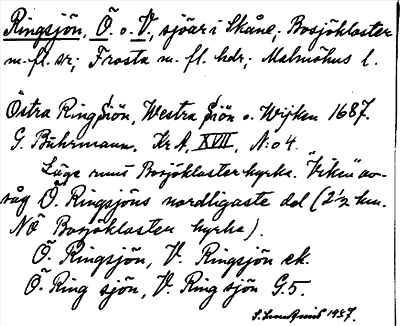 Ringsjön, Ö. o. V., sjöar i Skåne, Bosjökloster
m. fl. sr; Frosta m. fl. hdr; Malmöhus l.
Östra Ring Siön, Westra Siön o. Wijken 1687.
G. Buhrmann. Kr A, XVII, N:o 4.
Läge runt Bosjöklosters kyrka. "Viken" av-
såg Ö. Ringsjöns nordligaste del (2 ½ km.
NÖ Bosjöklosters kyrka).
Ö. Ringsjön, V. Ringsjön ek.
Ö. Ring sjön, V. Ring sjön G.5.
1987.